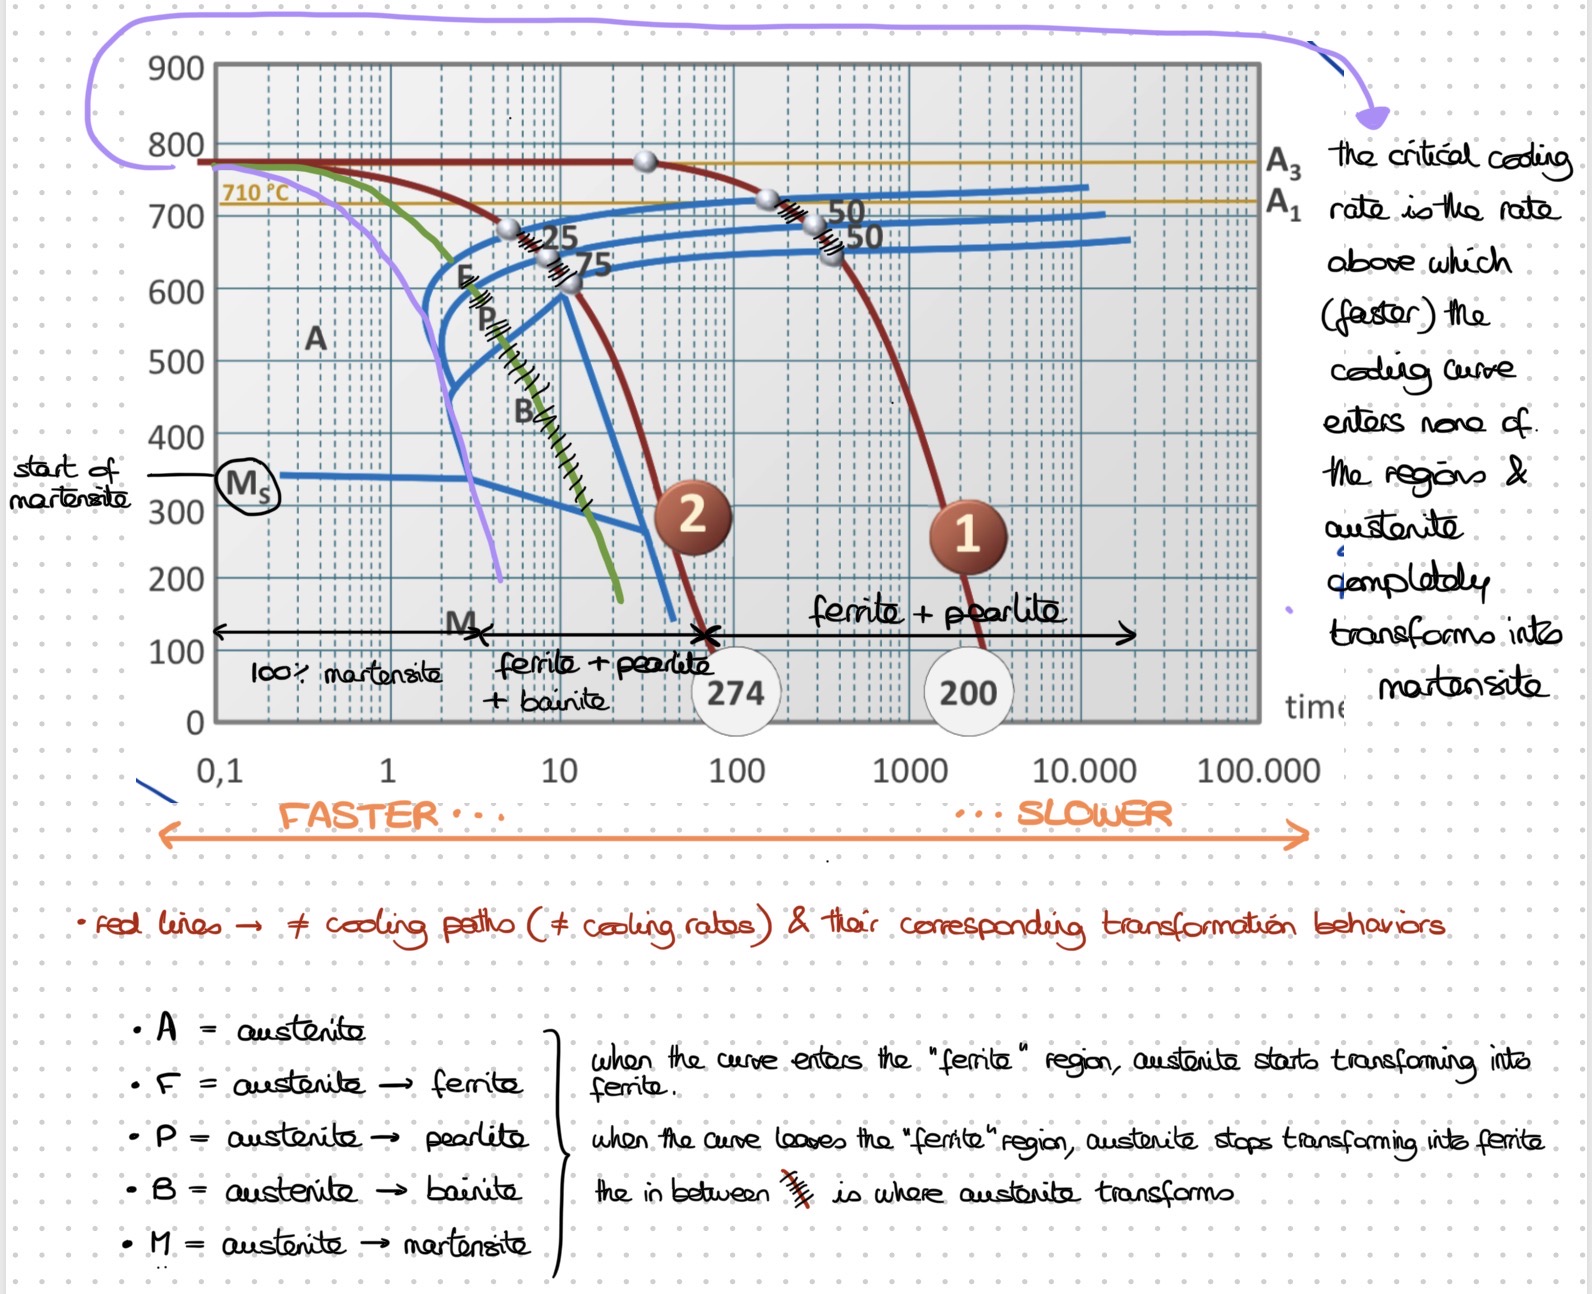 900
800
A₃
710 °C
700
A₁
50
25
50
75
600
F
P
A
500
B
400
start of
martensite
Mₛ
300
2
1
200
ferrite + pearlite
M
100
100% martensite
ferrite + pearlite
+ bainite
274
200
0
time
0,1
1
10
100
1000
10.000
100.000
FASTER ...
... SLOWER
the critical cooling
rate is the rate
above which
(faster) the
cooling curve
enters none of
the regions &
austenite
completely
transforms into
martensite
• red lines → ≠ cooling paths (≠ cooling rates) & their corresponding transformation behaviors
• A = austenite
• F = austenite → ferrite
• P = austenite → pearlite
• B = austenite → bainite
• M = austenite → martensite
when the curve enters the "ferrite" region, austenite starts transforming into
ferrite.
when the curve leaves the "ferrite" region, austenite stops transforming into ferrite
the in between is where austenite transforms